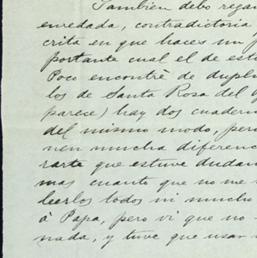 Tambien debo rega
enredada, contradictoria
crita en que haces un
portante cual el de est
Poco encontré de dupli
los de Santa Rosa del
parece) hay dos cuader
del mismo modo, per
nen mucha diferenc
rarte que estuve dudan
mas cuanto que no me
leerlos todos ni mucho
à Papa, pero vi que no
nada, y tuve que usar